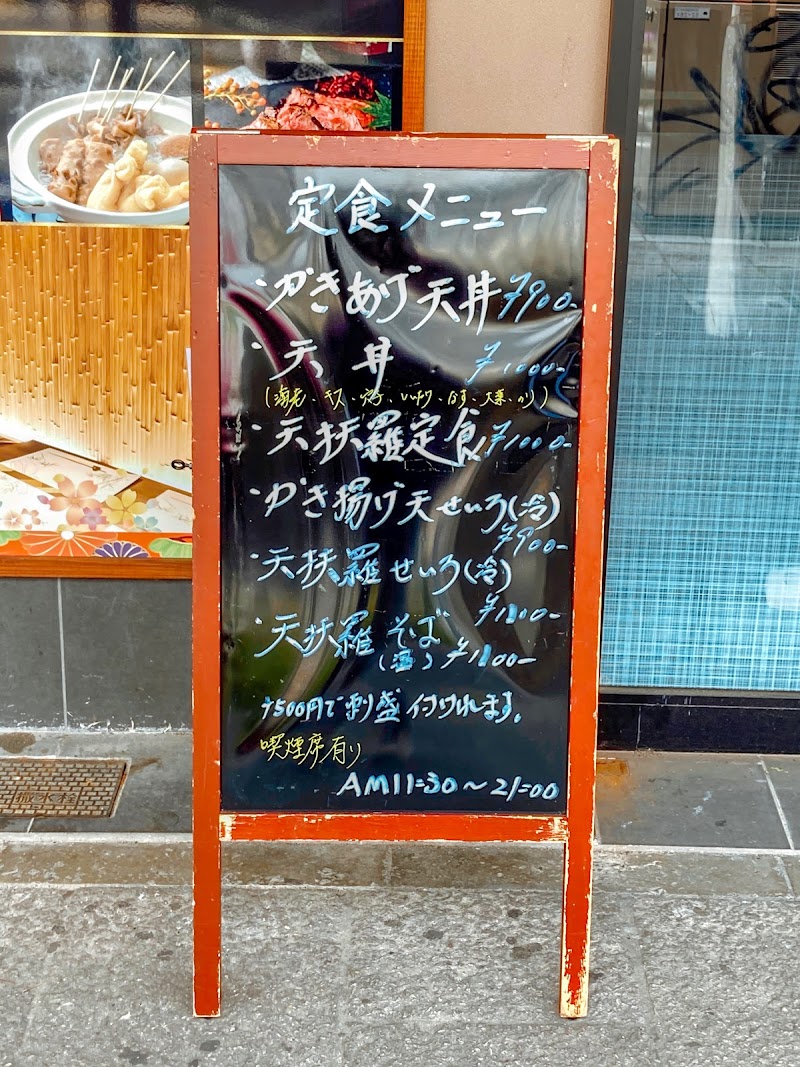 定食メニュー
・かきあげ天丼 ¥900-
・天丼 ¥1000-
(海老、キス、穴子、いか、なす、大葉、のり)
・天扶羅定食 ¥1000-
・かき揚げ天せいろ(冷)
¥900-
・天扶羅せいろ(冷)
¥1200-
・天扶羅そば
(温) ¥1200-
+500円で刺盛付けれます。
喫煙席有り
AM11:30~21:00
散水栓